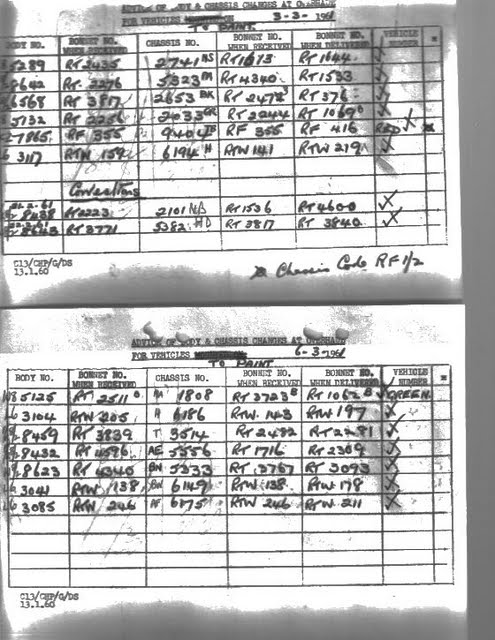 ADVICE OF BODY & CHASSIS CHANGES AT OVERHAUL
FOR VEHICLES 3-3-1961
TO PAINT
BODY NO. BONNET NO. WHEN RECEIVED CHASSIS NO. BONNET NO. WHEN RECEIVED BONNET NO. WHEN DELIVERED VEHICLE NUMBER *
5289 RT 2435 2741 NS RT 1673 RT 1644
2642 RT 2276 5323 RT 4340 RT 1533
6568 RT 3817 2653 BK RT 2478 RT 376
5132 RT 2256 2033 GR RT 2244 RT 1069
7865 RF 355 9404 RF 355 RF 416 RED
3117 RTW 159 6194 H RTW 141 RTW 219
Corrections
8438 RT 2223 2101 RT 1536 RT 4600
RT 3771 5382 RT 3817 RT 3840
C13/CHP/G/DS
13.1.60
Chassis Code RF 1/2
ADVICE OF BODY & CHASSIS CHANGES AT OVERHAUL
FOR VEHICLES 6-3-1961
TO PAINT
BODY NO. BONNET NO. WHEN RECEIVED CHASSIS NO. BONNET NO. WHEN RECEIVED BONNET NO. WHEN DELIVERED VEHICLE NUMBER *
5125 RT 2511 1808 RT 3723 B RT 1062 B GREEN
3104 RTW 205 H 6186 RTW 143 RTW 197
8459 RT 3839 T 3514 RT 2482 RT 2281
8432 RT 4596 AE 5556 RT 1716 RT 2309
8623 RT 4340 BN 5333 RT 3767 RT 3093
3041 RTW 138 BN 6149 RTW 138 RTW 178
3085 RTW 246 AF 6175 RTW 246 RTW 211
C13/CHP/G/DS
13.1.60